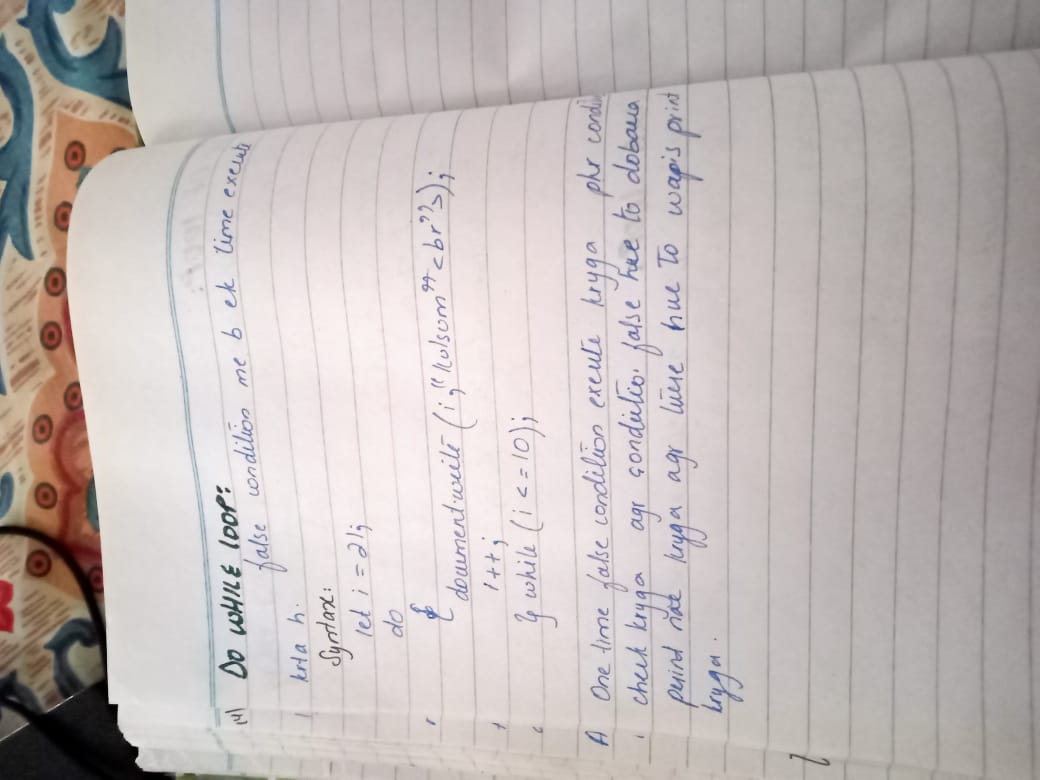 (4) DO WHILE LOOP:
false condition me b ek time execute
krta h.
Syntax:
let i = 21;
do
{ document.write (i,"kulsum"<br">);
i++;
} while (i <= 10);
One time false condition exeute kryga phr condi
check kryga agr conditio. false hue to dobaua
perint nae kryga agr kuese hue To wapis print
kryga.